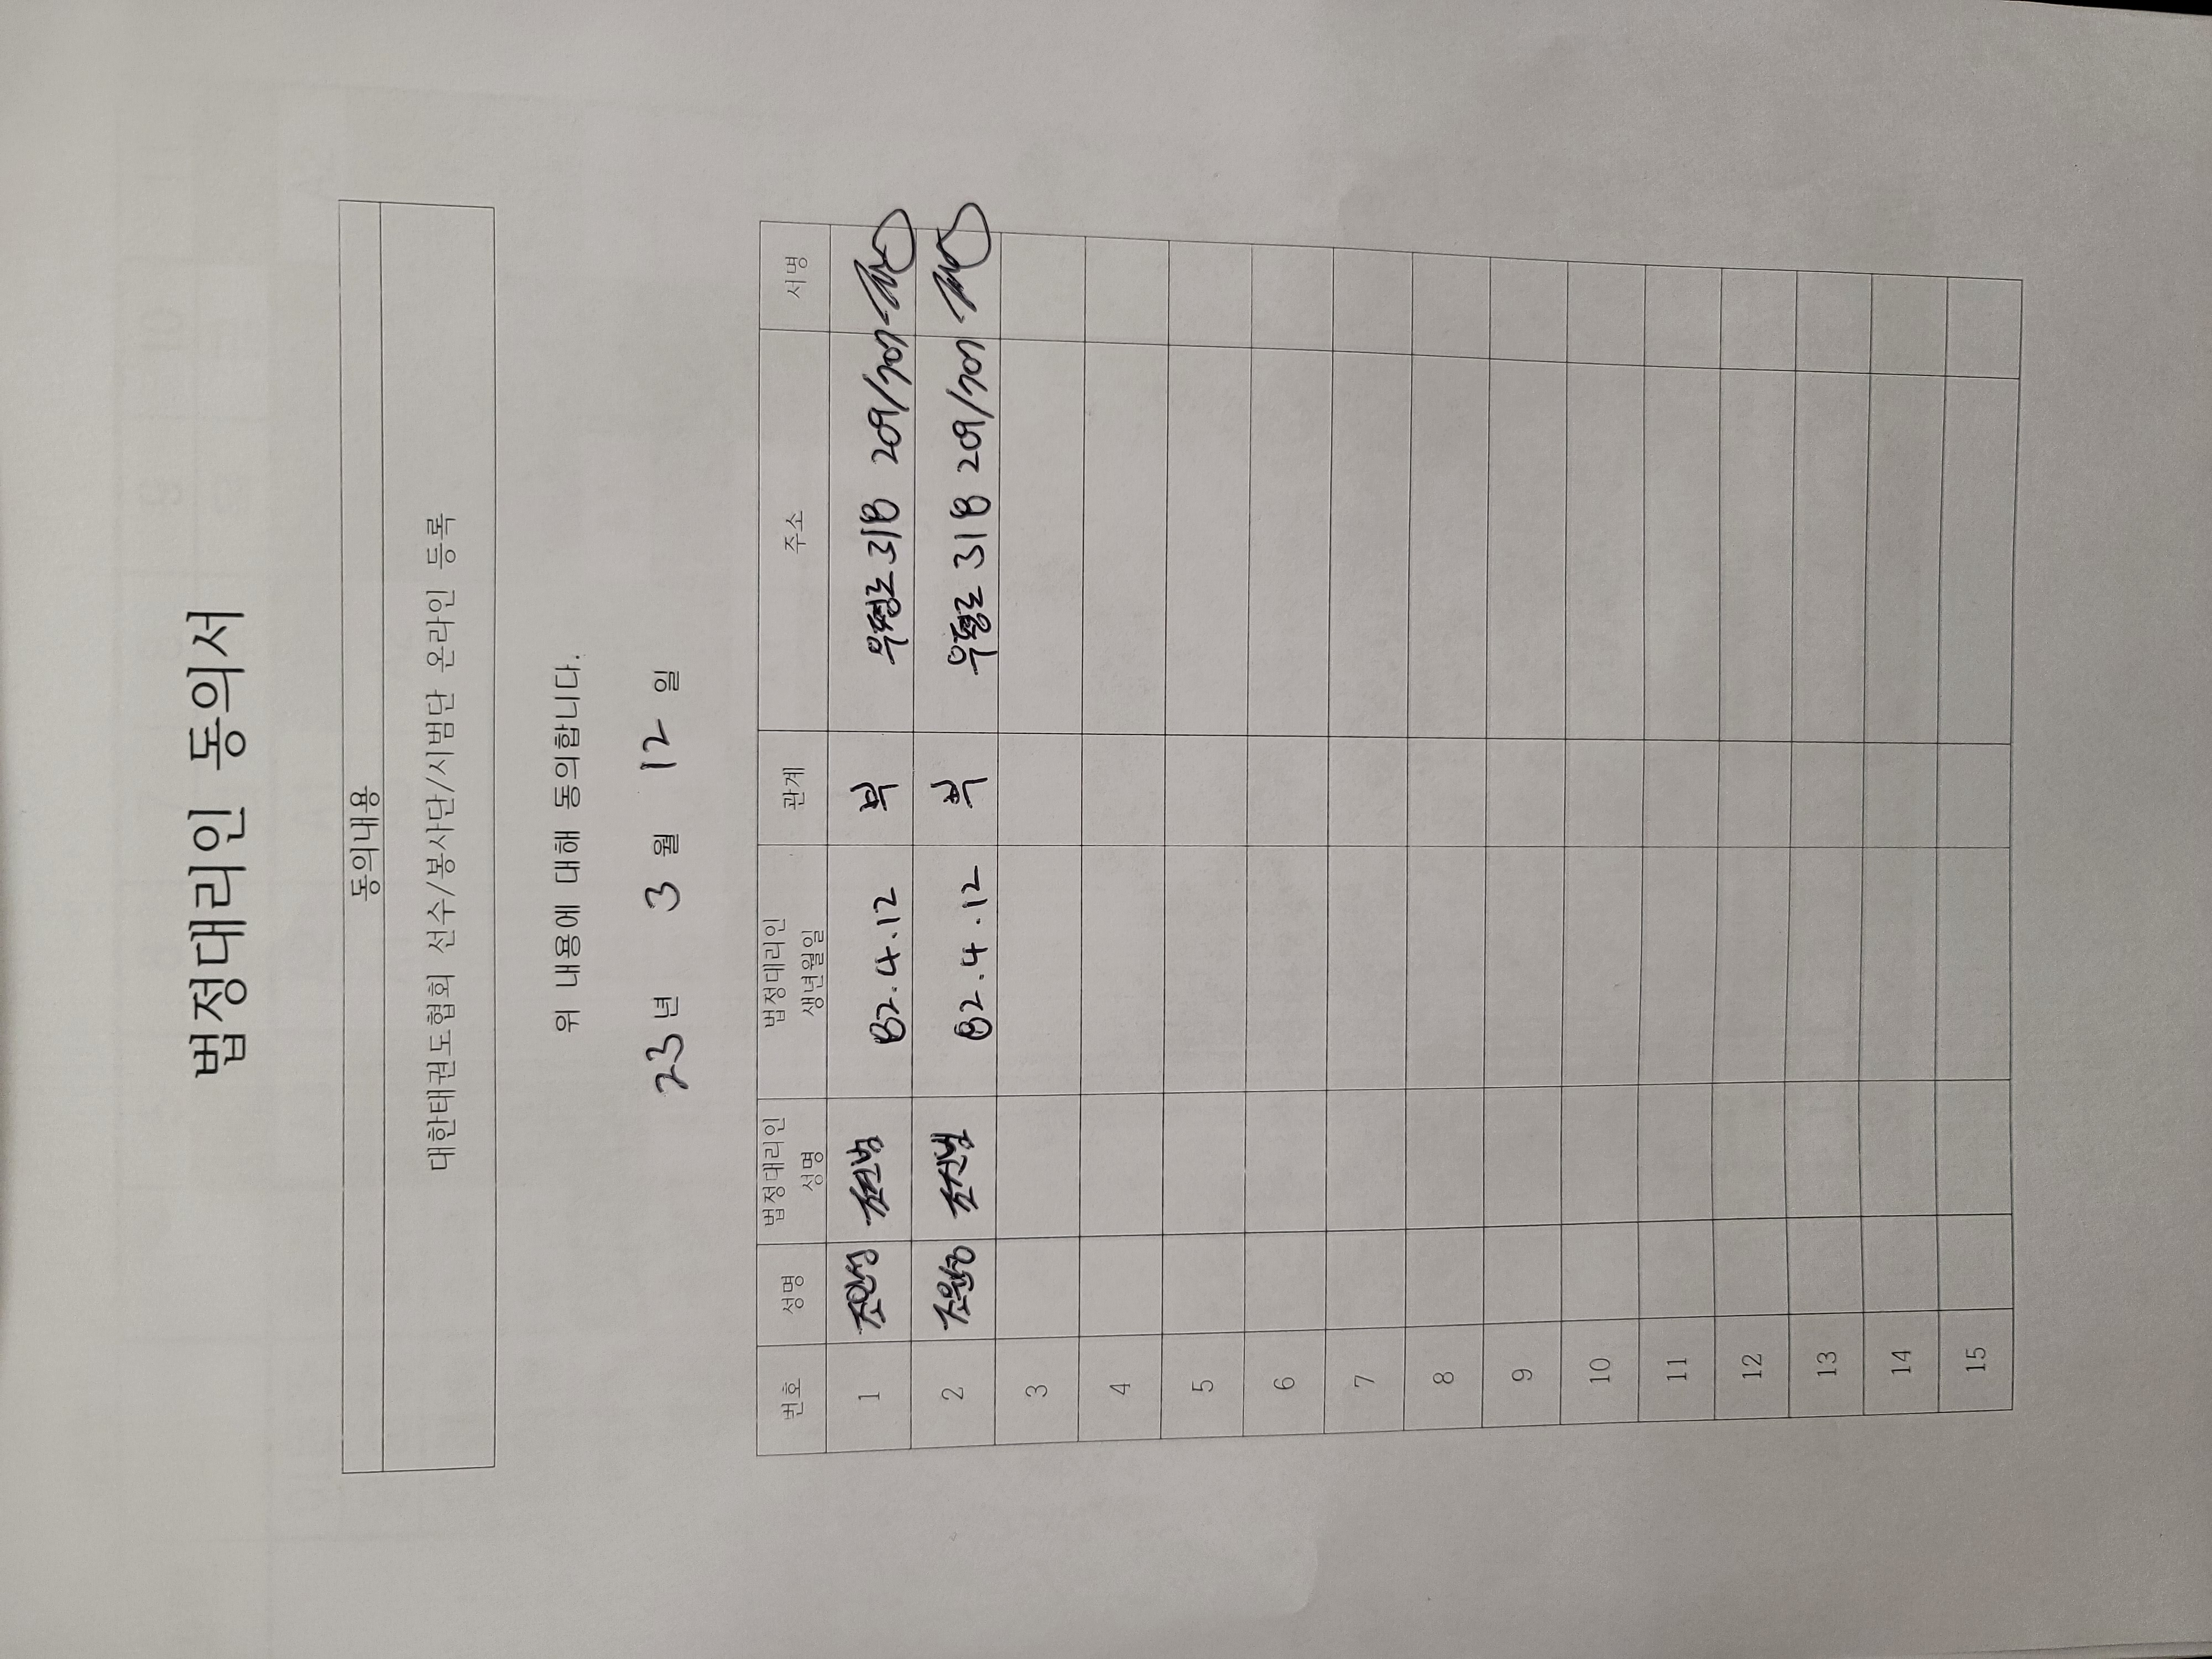 법정대리인 동의서
동의내용
대한태권도협회 선수/봉사단/시범단 온라인 등록
위 내용에 대해 동의합니다.
23년 3월 12일
번호 성명 법정대리인 성명 법정대리인 생년월일 관계 주소 서명
1 82.4.12 부 318 209/701
2 82.4.12 부 318 209/701
3
4
5
6
7
8
9
10
11
12
13
14
15